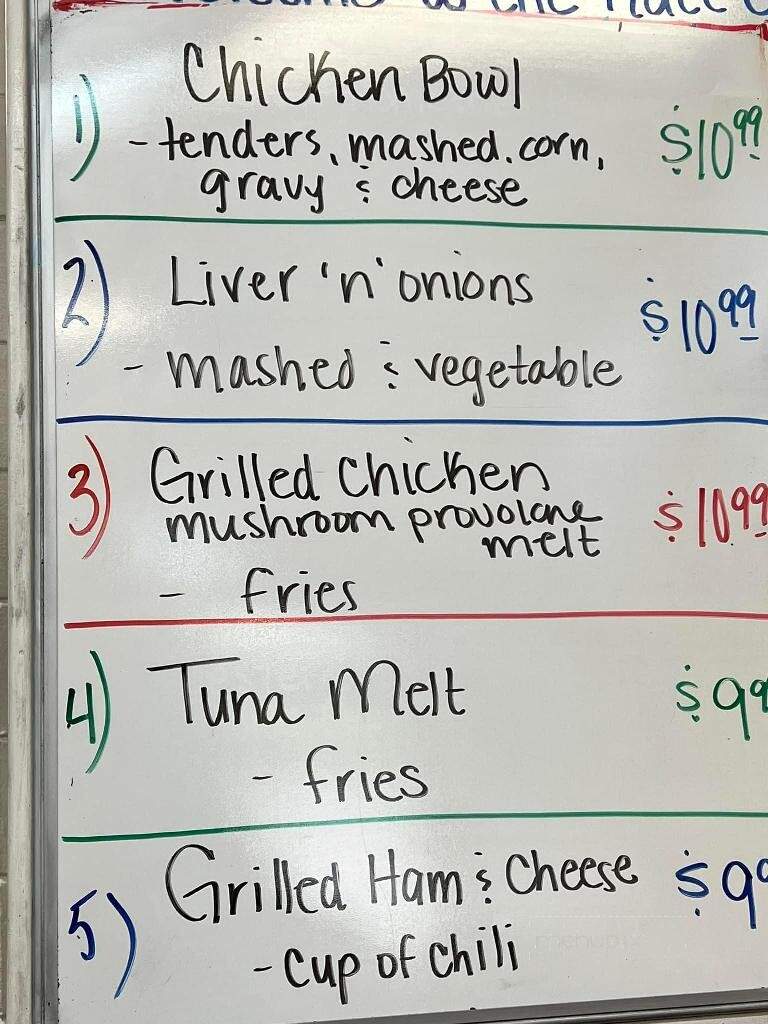 to the
1) Chicken Bowl
- tenders, mashed, corn, $10.99
gravy & cheese
2) Liver 'n' onions $10.99
- mashed & vegetable
3) Grilled Chicken
mushroom provolone $10.99
melt
- fries
4) Tuna Melt $9
- fries
5) Grilled Ham & Cheese $9
- cup of chili
menupix